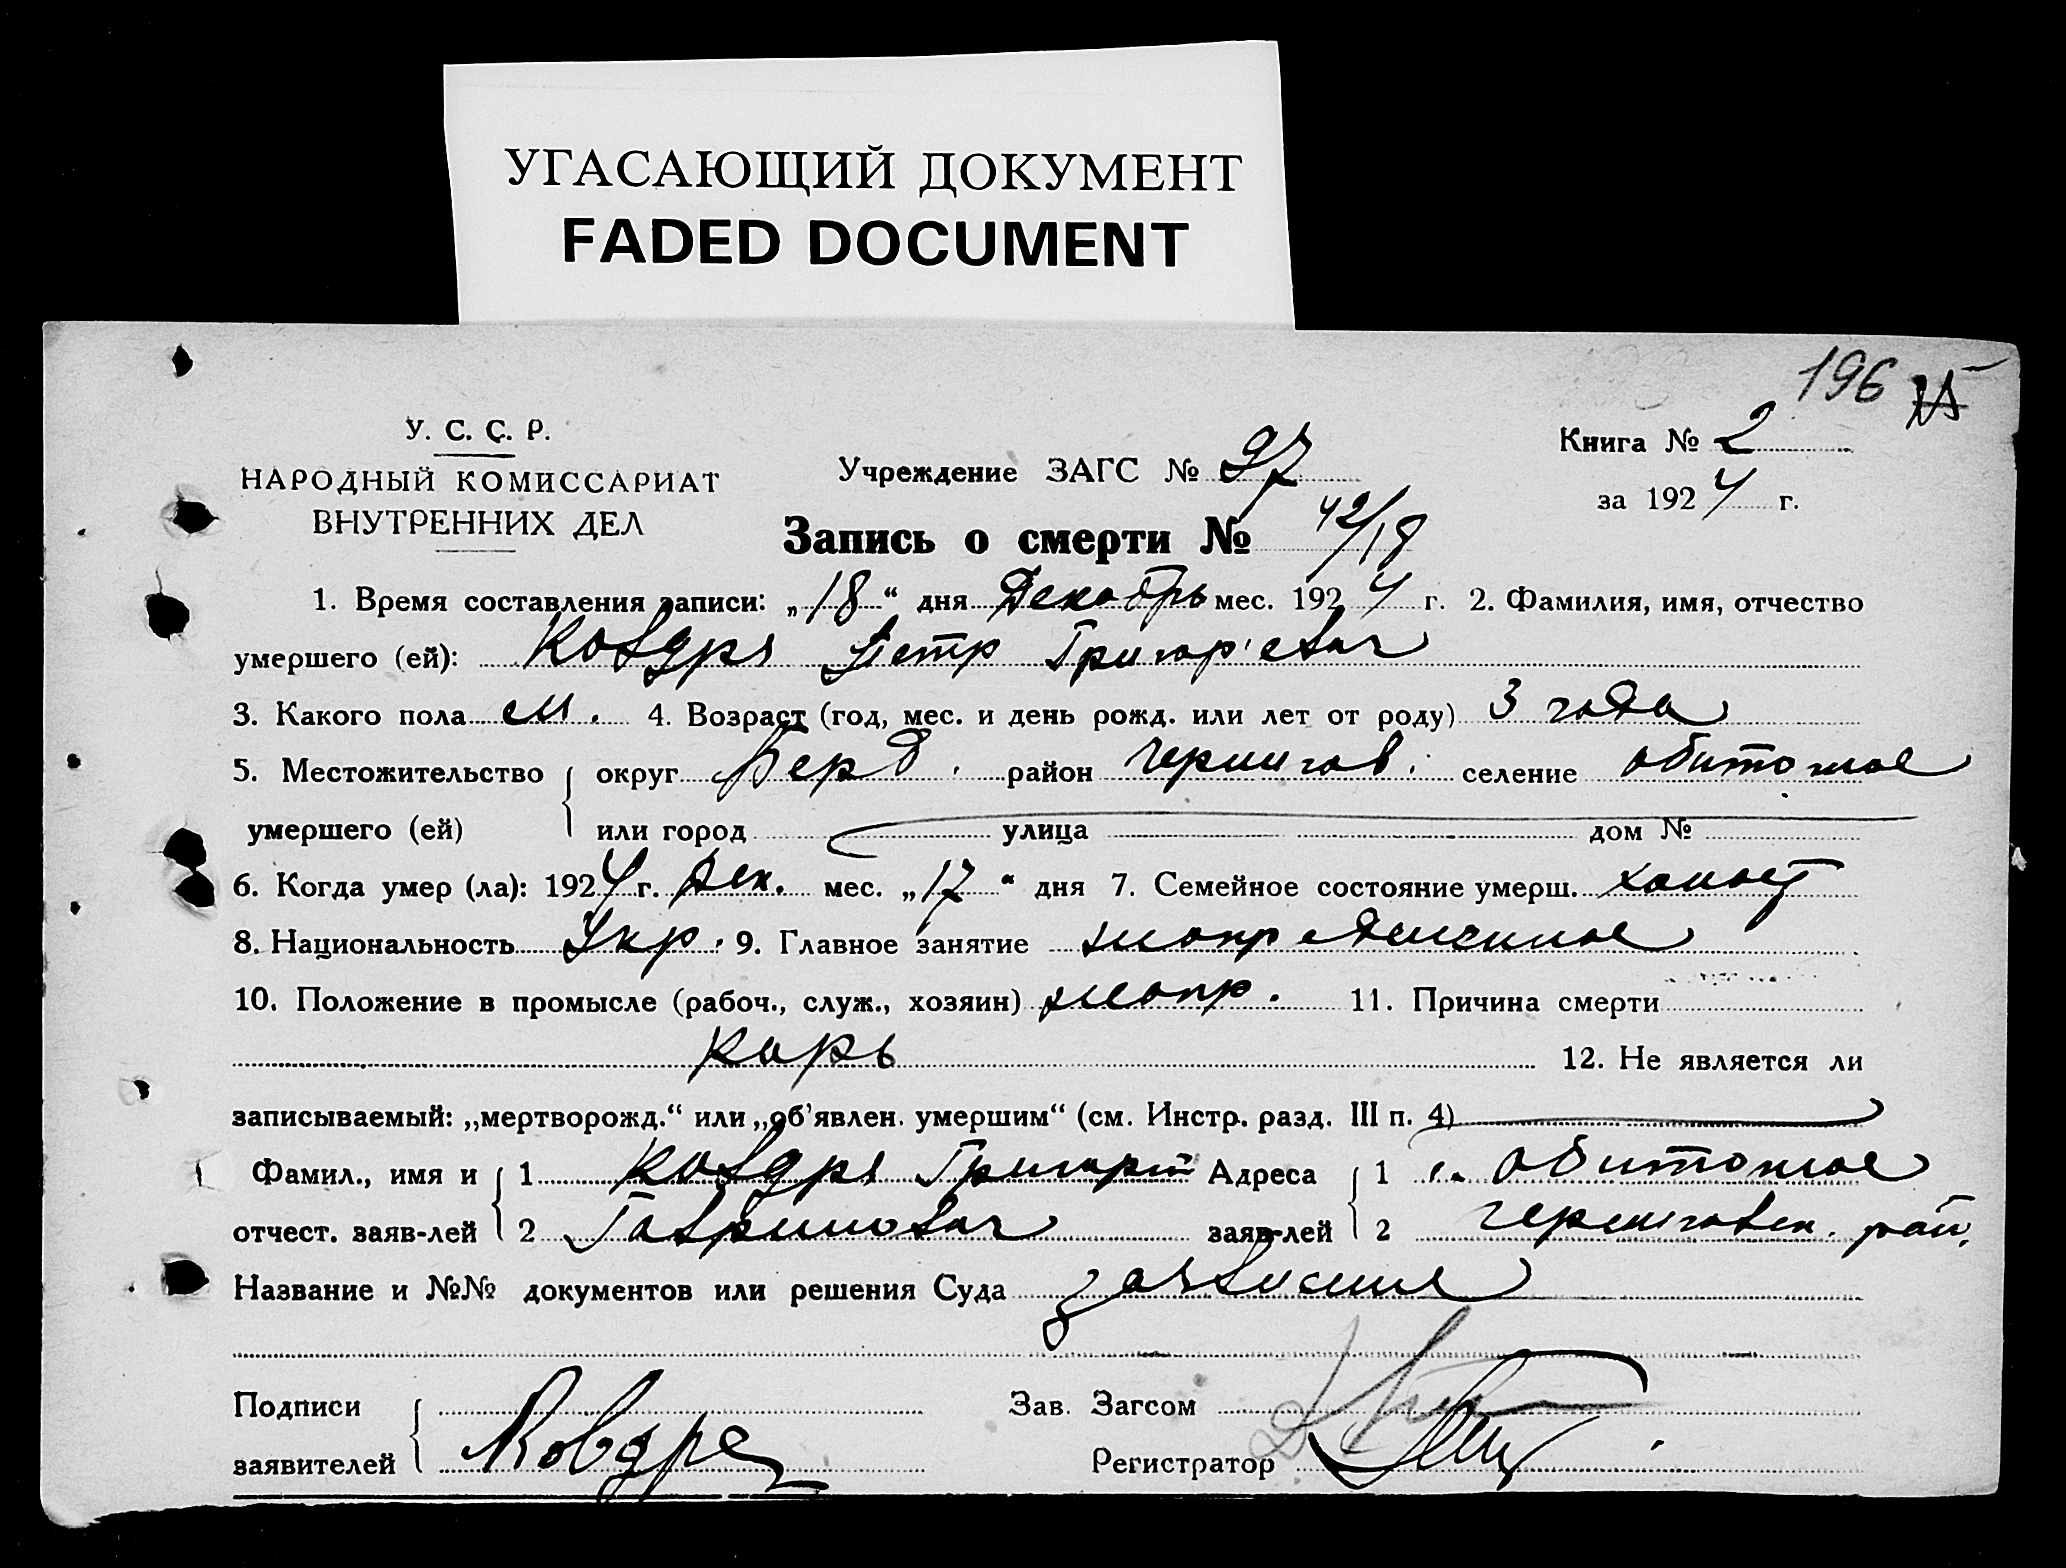 УГАСАЮЩИЙ ДОКУМЕНТ
FADED DOCUMENT
196
У. С. С. Р.
НАРОДНЫЙ КОМИССАРИАТ
ВНУТРЕННИХ ДЕЛ
Учреждение ЗАГС № 97
Книга № 2
за 1924 г.
Запись о смерти № 42/18
1. Время составления записи: „18“ дня Декабрь мес. 1924 г. 2. Фамилия, имя, отчество
умершего (ей): Ковдря Петр Григор'евич
3. Какого пола м. 4. Возраст (год, мес. и день рожд. или лет от роду) 3 года
5. Местожительство округ Берд. район Чернигов. селение Обиточное
умершего (ей) или город улица дом №
6. Когда умер (ла): 1924 г. Дек. мес. „17“ дня 7. Семейное состояние умерш. холост
8. Национальность Укр. 9. Главное занятие
10. Положение в промысле (рабоч., служ., хозяин) 11. Причина смерти
Корь 12. Не является ли
записываемый: „мертворожд.“ или „об'явлен. умершим“ (см. Инстр. разд. III п. 4)
Фамил., имя и 1 Ковдря Григорій Адреса 1 с. Обиточное
отчест. заяв-лей 2 Гавринович заяв-лей 2 Черниговск. рай.
Название и №№ документов или решения Суда
Подписи Зав. Загсом
заявителей Ковдря Регистратор